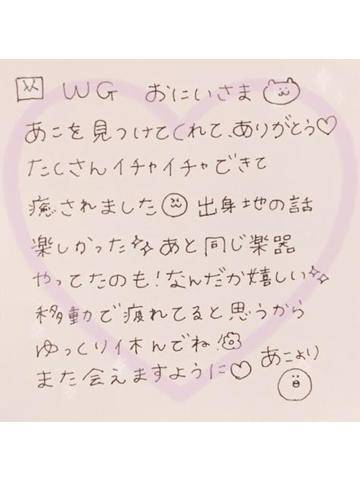 WG おにいさま
あこを見つけてくれて、ありがとう♡
たくさんイチャイチャできて
癒されました 出身地の話
楽しかった あと同じ楽器
やってたのも!なんだか嬉しい
移動で疲れてると思うから
ゆっくり休んでね
また会えますように♡ あこより